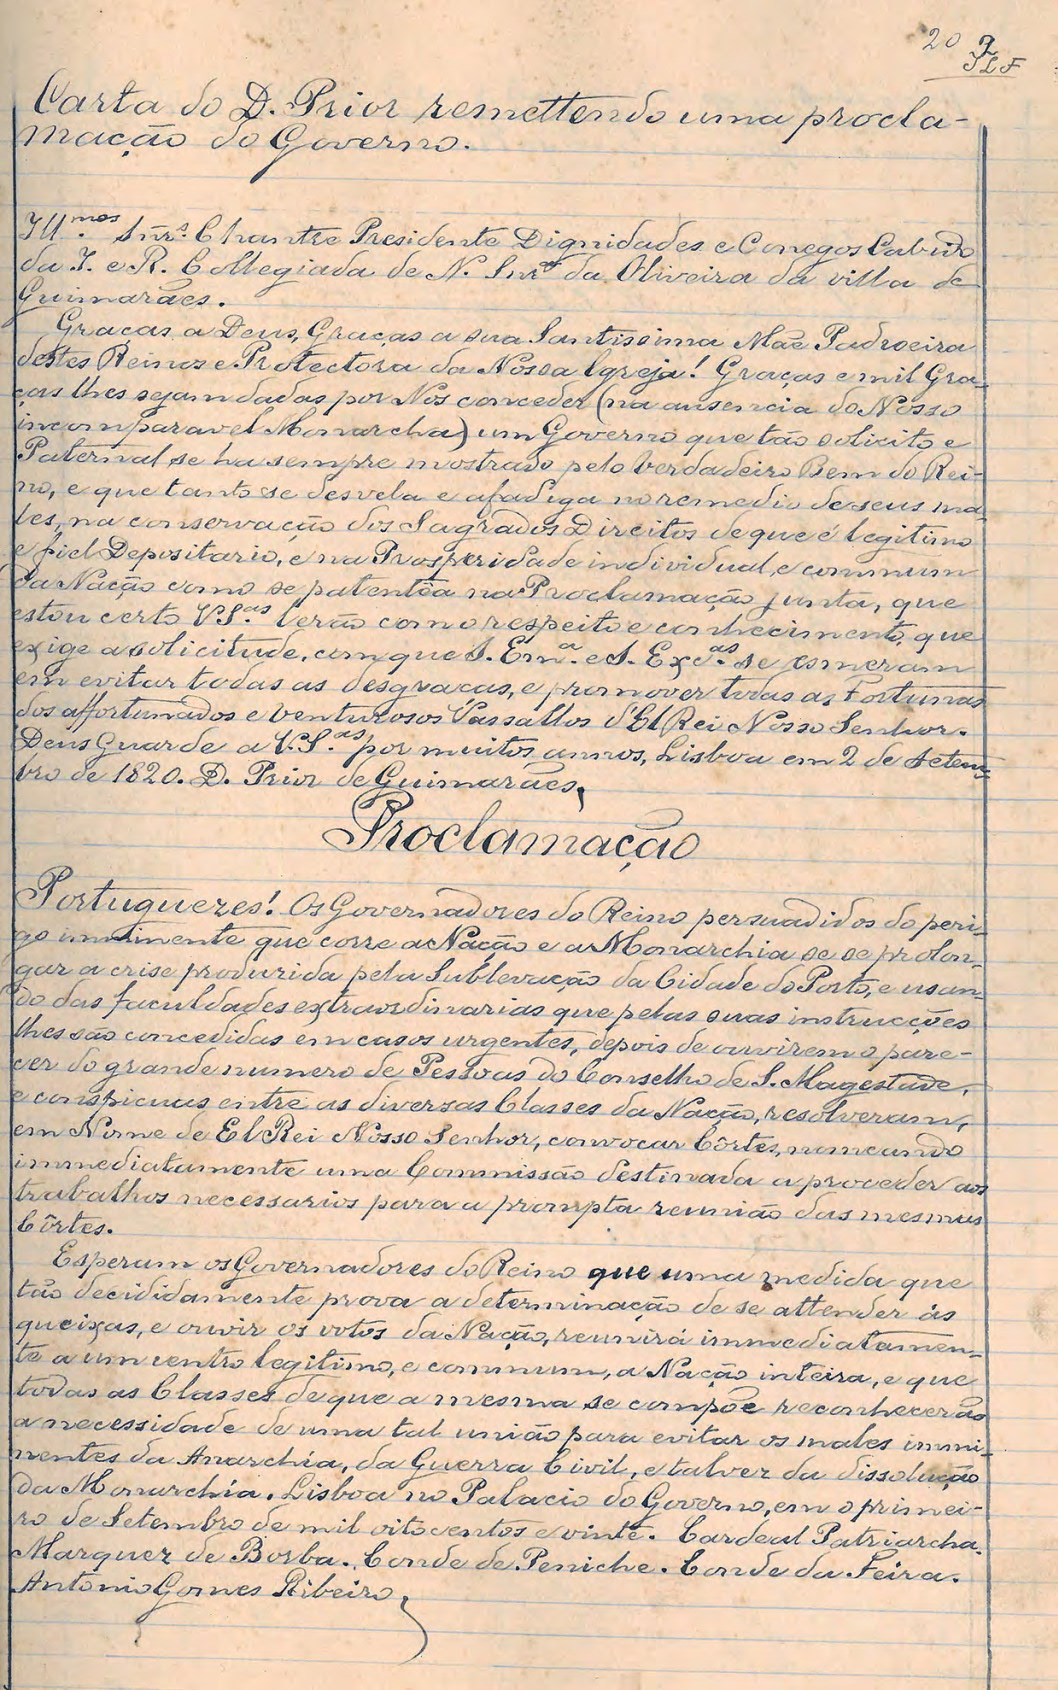 20 2
JLF
Carta do D. Prior remettendo uma procla-
mação do Governo.
Ill.mos Snr.s Chantre Presidente Dignidades e Conegos Cabido
da I. e R. Collegiada de N. Snr.a da Oliveira da villa de
Guimarães.
Graças a Deus, Graças a sua Santissima Mãe Padroeira
destes Reinos e Protectora da Nossa Igreja! Graças e mil Gra-
ças lhes sejam dadas por Nos conceder (na ausencia do Nosso
incomparavel Monarcha) um Governo que tão solicito e
Paternal se ha sempre mostrado pelo verdadeiro Bem do Rei-
no, e que tanto se desvela e afadiga no remedio de seus ma-
les, na conservação dos Sagrados Direitos de que é legitimo
e fiel Depositario, e na Prosperidade individual, e commum
da Nação como se patentêa na Proclamação junta, que
estou certo V.S.as lerão com o respeito e conhecimento, que
exige a solicitude, com que S. Em.a e S. Exc.as se esmeram
em evitar todas as desgraças, e promover todas as Fortunas
dos affortunados e venturosos Vassallos d'El Rei Nosso Senhor.
Deus Guarde a V.S.as por muitos annos, Lisboa em 2 de Setem-
bro de 1820. D. Prior de Guimarães,
Proclamação
Portuguezes! Os Governadores do Reino persuadidos do peri-
go imminente que corre a Nação e a Monarchia se se prolon-
gar a crise produzida pela Sublevação da Cidade do Porto, e usan-
do das faculdades extraordinarias que pelas suas instrucções
lhes são concedidas em casos urgentes, depois de ouvirem o pare-
cer do grande numero de Pessoas do Conselho de S. Magestade,
e conspicuas entre as diversas Classes da Nação, resolveram,
em Nome de El Rei Nosso Senhor, convocar Côrtes, nomeando
immediatamente uma Commissão destinada a proceder aos
trabalhos necessarios para a prompta reunião das mesmas
Côrtes.
Esperam os Governadores do Reino que uma medida que
tão decididamente prova a determinação de se attender ás
queixas, e ouvir os votos da Nação, reunirá immediatamen-
te a um centro legitimo, e commum, a Nação inteira, e que
todas as Classes de que a mesma se compõe reconhecerão
a necessidade de uma tal união para evitar os males immi-
nentes da Anarchia, da Guerra Civil, e talvez da dissolução
da Monarchia. Lisboa no Palacio do Governo, em o primei-
ro de Setembro de mil oitocentos e vinte. Cardeal Patriarcha.
Marquez de Borba. Conde de Peniche. Conde da Feira.
Antonio Gomes Ribeiro,